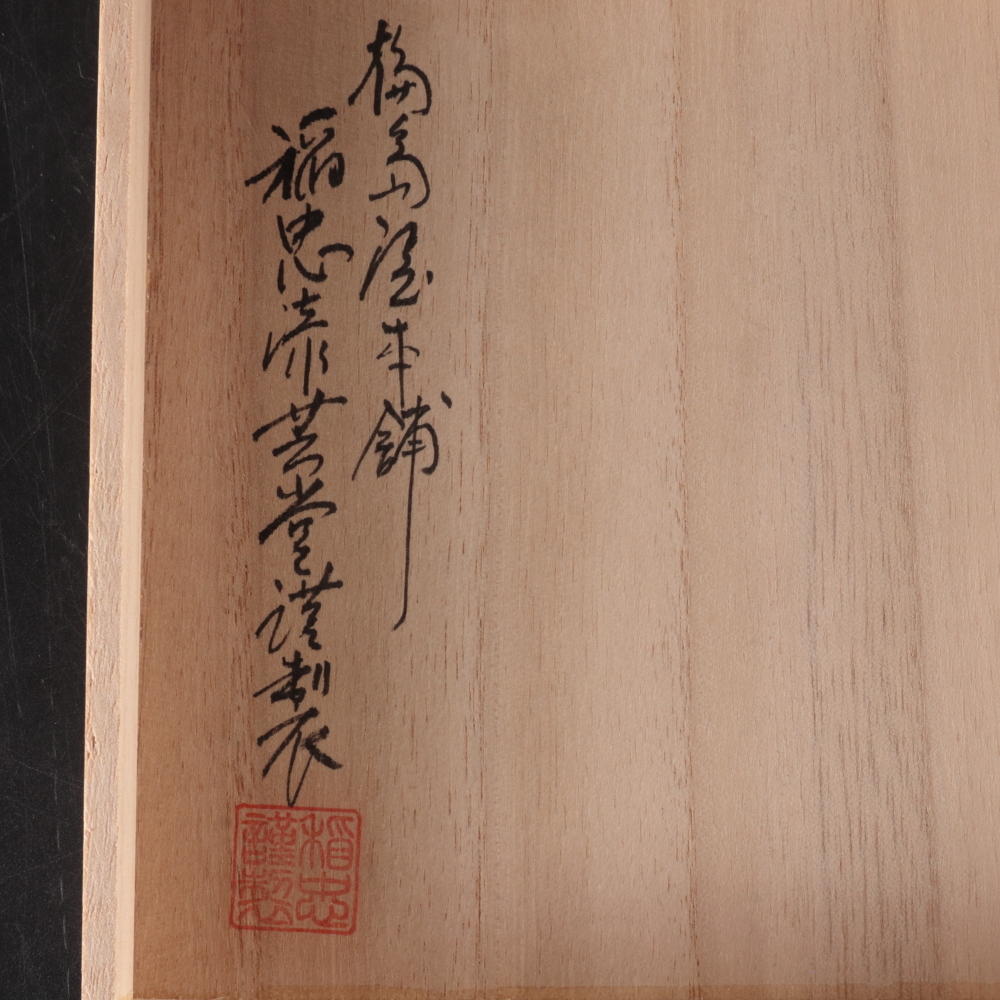 輪島塗本舗
稲忠漆芸堂謹製
稲忠
謹製